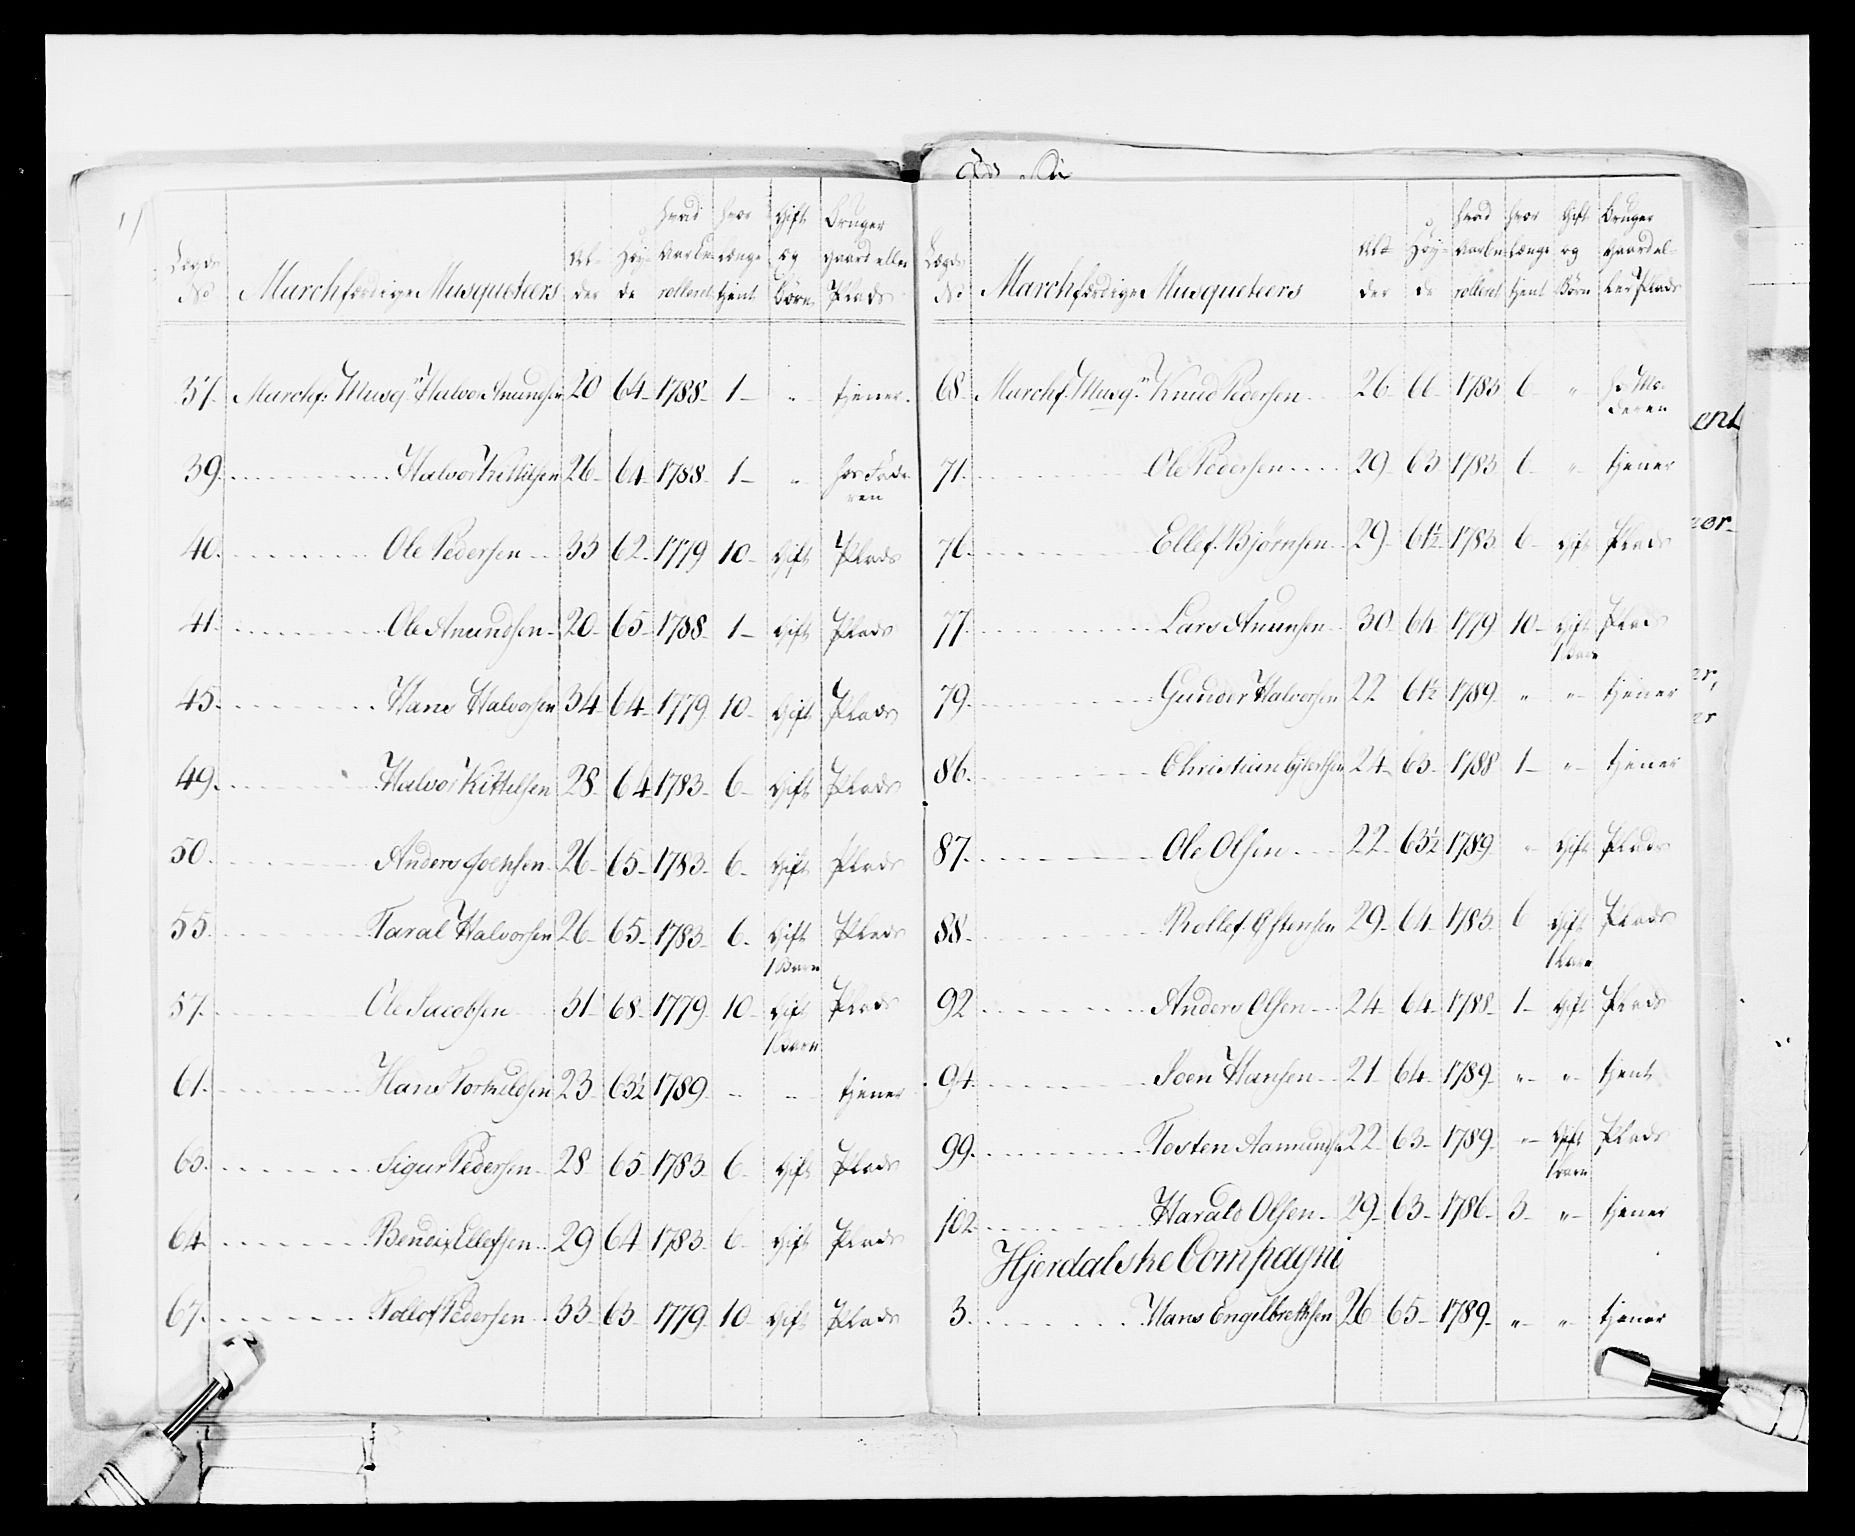 Lægds No | Marchfærdige Musqueteers | Al- der | Høy- de | hvad aar En- rollert | hvor længe tient | Gift og Børn | Bruger Gaard eller Plads
37. Marchf: Musq:r Halvor Anundsen 20 64 1788 1 " tiener
39. Halvor Kittilsen 26 64 1788 1 " hos Fade- ren
40. Ole Pedersen 33 62 1779 10 Gift Plads
41. Ole Anundsen 20 65 1788 1 Gift Plads
45. Hans Halvorsen 34 64 1779 10 Gift Plads
49. Halvor Kittelsen 28 64 1783 6 Gift Plads
50. Anders Joensen 26 65 1783 6 Gift Plads
55. Taral Halvorsen 26 65 1783 6 Gift 1 Barn Plads
57. Ole Jacobsen 31 68 1779 10 Gift 1 Barn Plads
61. Hans Torkildsen 23 63½ 1789 " " tiener
63. Sigur Pedersen 28 65 1783 6 Gift Plads
64. Bendix Ellefsen 29 64 1783 6 Gift Plads
67. Pedersen 33 63 1779 10 Gift Plads
Lægds No | Marchfærdige Musqueteers | Al- der | Høy- de | hvad aar En- rollert | hvor længe tient | Gift og Børn | Bruger Gaard el- ler Plads
68. Marchf: Musq:r Knud Pedersen 26 66 1783 6 " deren
71. Ole Pedersen 29 63 1783 6 " tiener
76. Ellef Bjørnsen 29 61½ 1783 6 Gift Plads
77. Lars Anunsen 30 64 1779 10 Gift 1 Barn Plads
79. Gunder Halvorsen 22 61½ 1789 " " tiener
86. Christian 24 63 1788 1 " tiener
87. Ole Olsen 22 63½ 1789 " Gift Plads
88. Rollef Østensen 29 64 1783 6 Gift 1 Barn Plads
92. Anders Olsen 24 64 1788 1 Gift Plads
94. Joen Hansen 21 64 1789 " " tient
99. Tosten Aamundsen 22 63 1789 " Gift 1 Barn Plads
102. Harald Olsen 29 63 1786 3 " tiener
Hjerdalske Compagni
3. Hans Engelbrethsen 26 65 1789 " " tiener